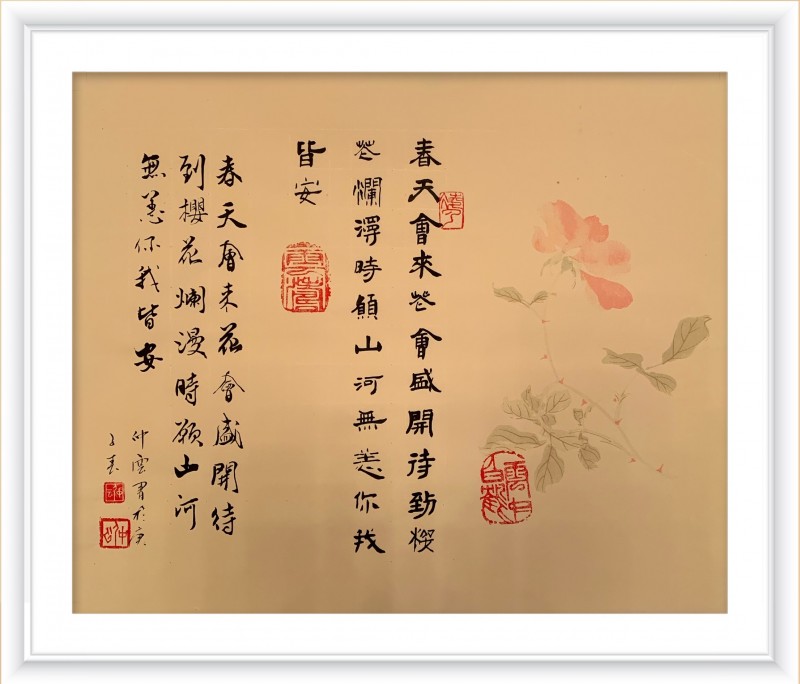 春天會來花會盛開待到櫻
花爛漫時願山河無恙你我
皆安
春天會来花會盛開待
到櫻花爛漫時願山河
無恙你我皆安
仲雲書於庚
子春